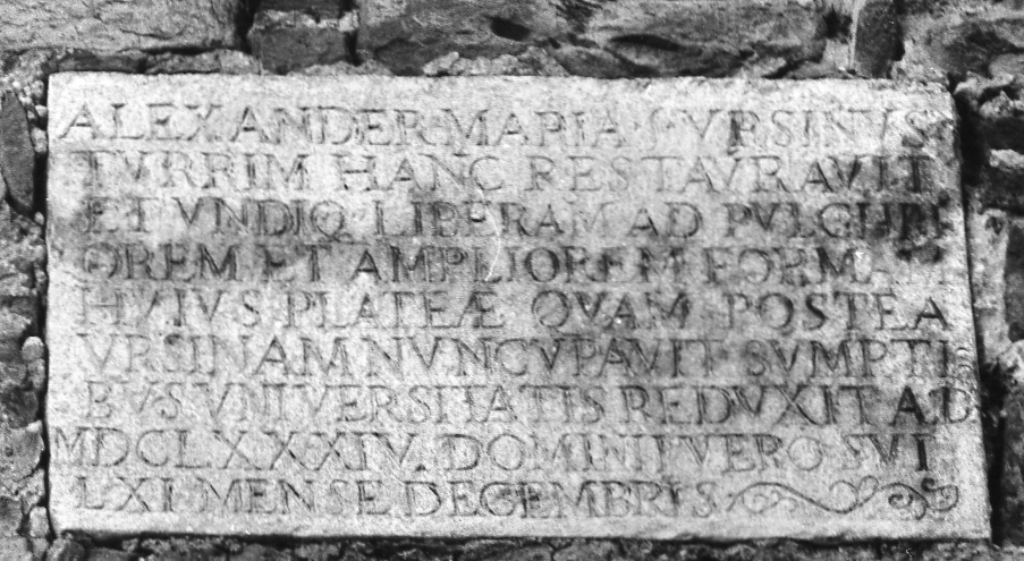 ALEXANDER MARIA URSINVS
TVRRIM HANC RESTAVRAVIT
ET VNDIQ LIBERAM AD PVLCHRI
OREM ET AMPLIOREM FORMAM
HVIVS PLATEÆ QVAM POSTEA
VRSINAM NVNCVPAVIT SVMPTI
BVS UNIVERSITATIS REDVXIT AD
MDCLXXXXIV. DOMINII VERO SVI
LXI MENSE DECEMBRIS